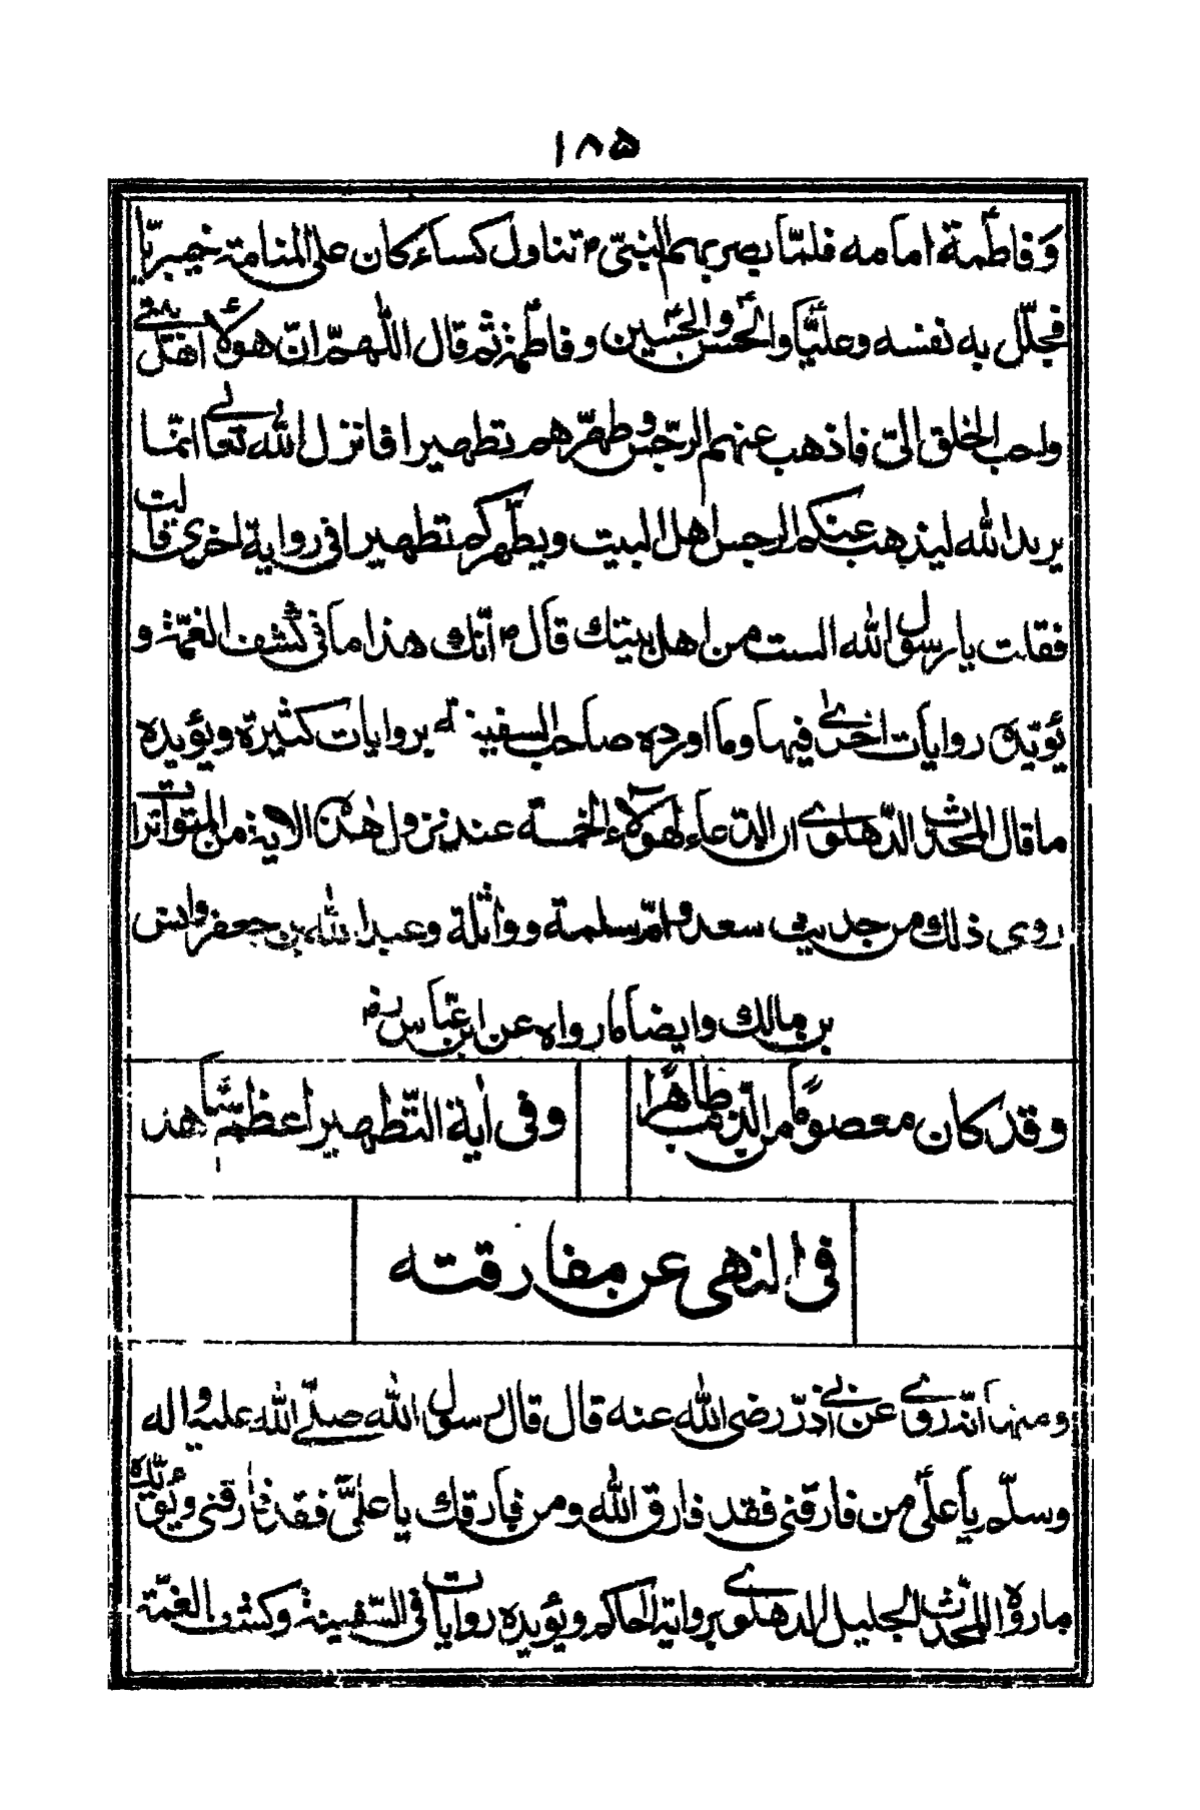 ١٨۵
وفاطمة امامه فلمّا بصر بهم النبىّ ص تناول كساء كان على المنامة خيبريّا
فجلّل به نفسه وعليّا والحسن والحسين وفاطمة ثم قال اللّهمّ انّ هؤلاء اهل بيتى
واحب الخلق الىّ فاذهب عنهم الرجس وطهّرهم تطهيرا فانزل الله تعالى انّما
يريد الله ليذهب عنكم الرجس اهل البيت ويطهّركم تطهيرا فى رواية اخرى قالت
فقلت يا رسول الله الست من اهل بيتك قال ص انّك هذا ما فى كشف الغمّة و
يؤيّده روايات اخرى فيها وما اورده صاحب السفينة له بروايات كثيرة ويؤيده
ما قال المحدّث الدّهلوى ان الدعاء لهؤلاء الخمسة عند نزول هذه الاية من المتواترات
روى ذلك من حديث سعد وامّ سلمة وواثلة وعبد الله بن جعفر وانس
بن مالك وايضا ما رواه عن ابن عبّاس رض
وقد كان معصومًا من الذنب طاهرًا
وفى اية التّطهير اعظم شاهد
فى النهى عن مفارقته
ومنها انّه روى عن ابى ذرّ رضى الله عنه قال قال رسول الله صلّى الله عليه واله
وسلّم يا علىّ من فارقنى فقد فارق الله ومن فارقك يا علىّ فقد فارقنى ويؤيّده
ما رواه المحدّث الجليل الدهلوى برواية الحاكم ويؤيده روايات فى السّفينة وكشف الغمّة